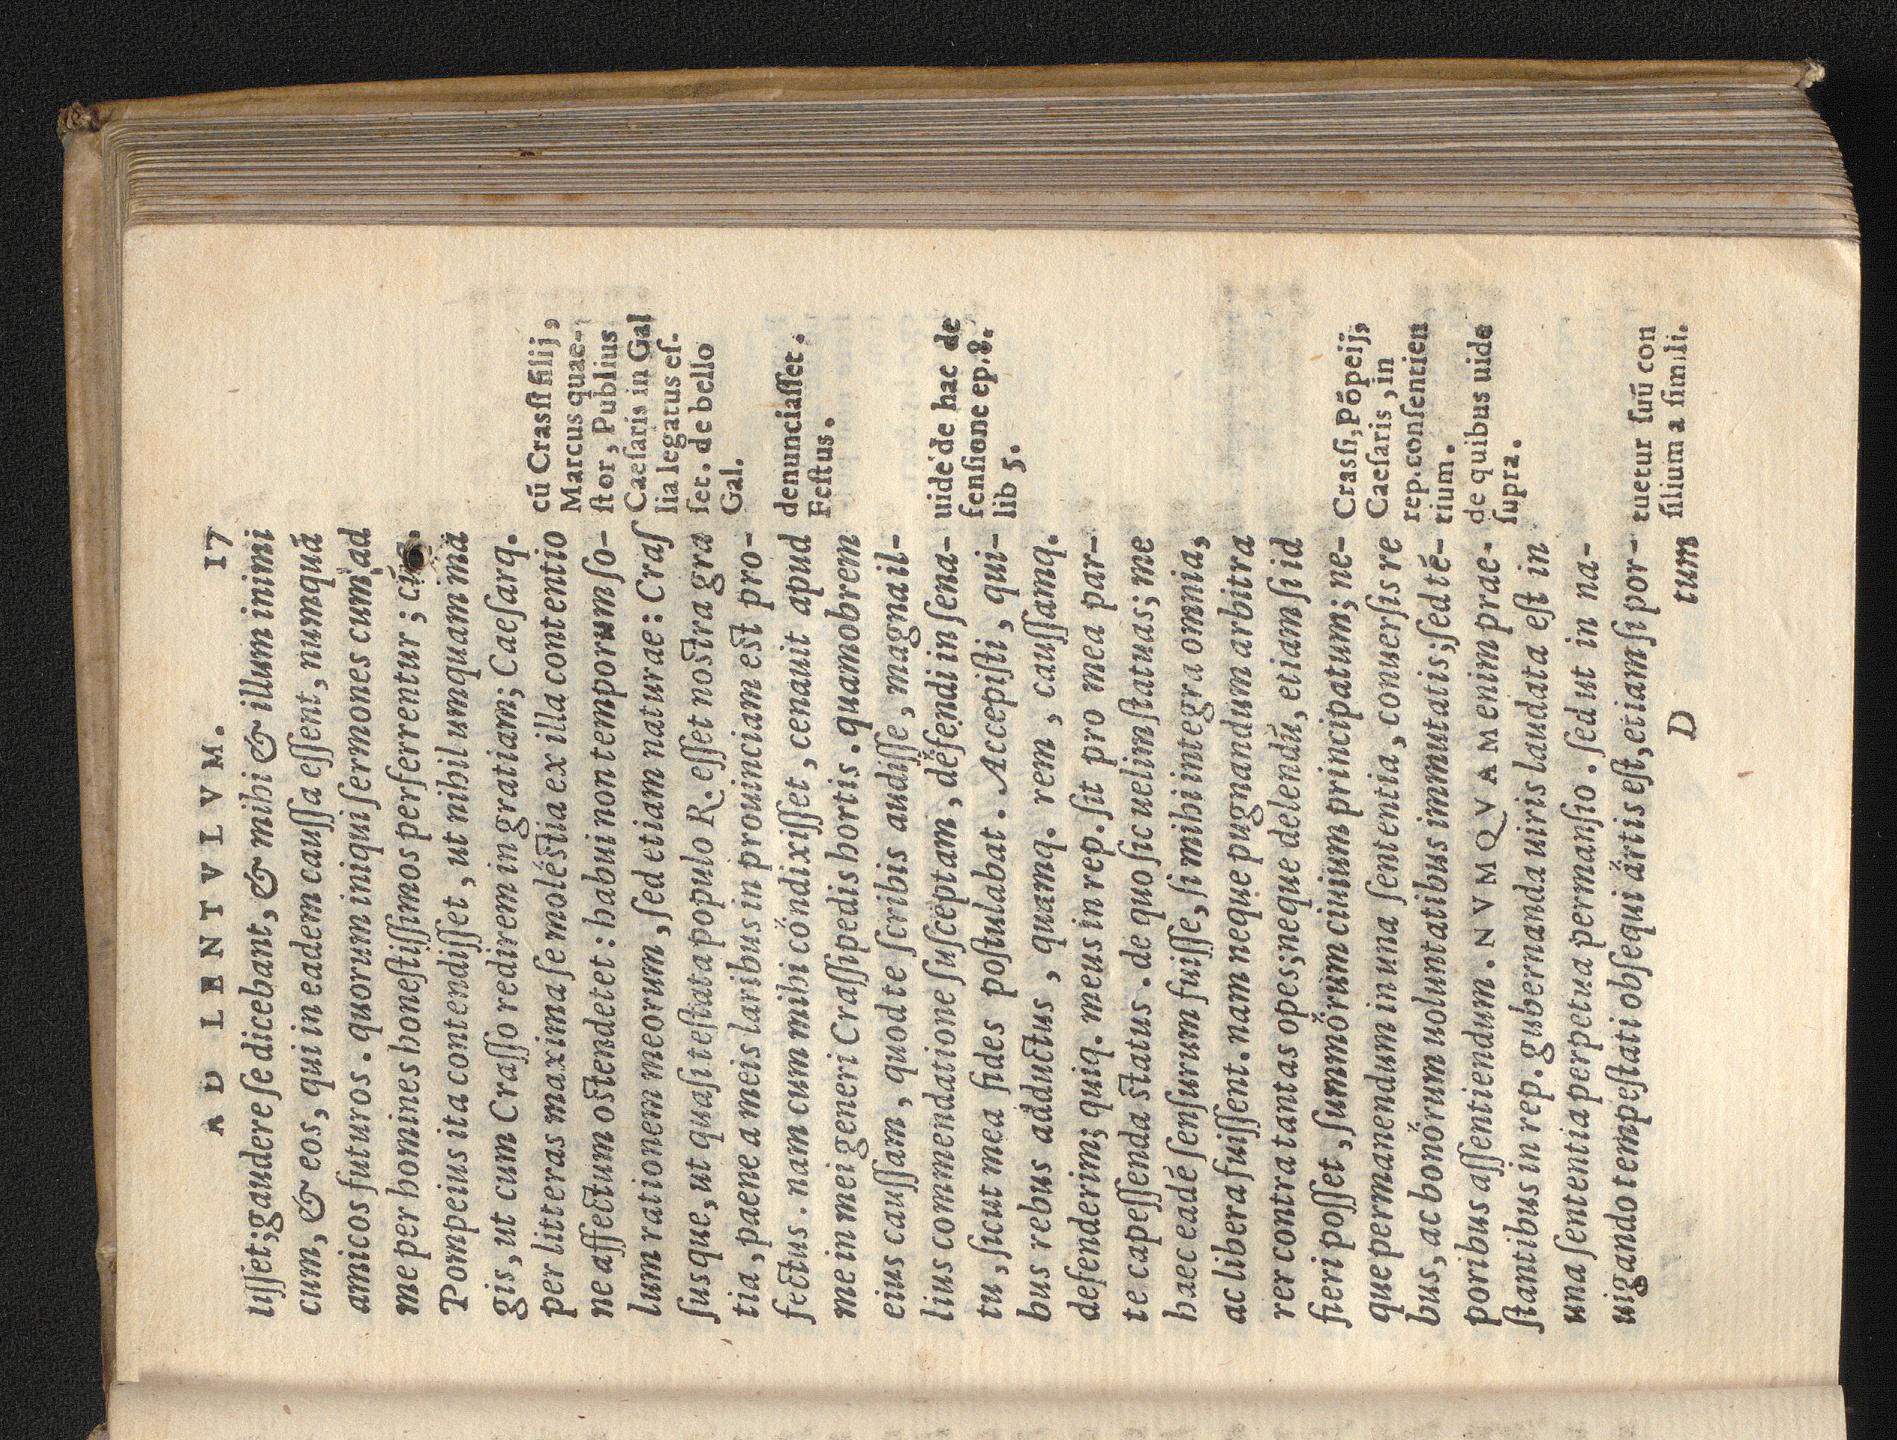 AD LENTVLVM. 17
liſſet; gaudere ſe dicebant, & mihi & illum inimi
cum, & eos, qui in eadem cauſſa eſſent, numquā
amicos futuros. quorum iniqui ſermones cum ad
me per homines honeſtiſſimos perferrentur;
Pompeius ita contendiſſet, ut nihil umquam ma
gis, ut cum Craſſo redirem in gratiam; Caeſarq.
per litteras maxima ſe moleſtia ex illa contentio
ne affectum oſtendetet: habui non temporum ſo-
lum rationem meorum, ſed etiam naturae: Craſ
ſusque, ut quaſi teſtata populo R. eſſet noſtra gra
tia, paene a meis laribus in prouinciam eſt pro-
fectus. nam cum mihi condixiſſet, cenauit apud
me in mei generi Craſſipedis hortis. quamobrem
eius cauſſam, quod te ſcribis audiſſe, magna il-
lius commendatione ſuſceptam, defendi in ſena-
tu, ſicut mea fides poſtulabat. Accepiſti, qui-
bus rebus adductus, quamq. rem, cauſſamq.
defenderim; quiq. meus in rep. ſit pro mea par-
te capeſſenda ſtatus. de quo ſic uelim ſtatuas; me
haec eadē ſenſurum fuiſſe, ſi mihi integra omnia,
ac libera fuiſſent. nam neque pugnandum arbitra
rer contra tantas opes; neque delendū, etiam ſi id
fieri poſſet, ſummorum ciuium principatum; ne-
que permanendum in una ſententia, conuerſis re
bus, ac bonorum uoluntatibus immutatis; ſed tē-
poribus aſſentiendum. NVMQVAM enim prae-
ſtantibus in rep. gubernanda uiris laudata eſt in
una ſententia perpetua permanſio. ſed ut in na-
uigando tempeſtati obſequi artis eſt, etiam ſi por-
D tum
cū Craſſi filij,
Marcus quae-
ſtor, Publius
Caeſaris in Gal
lia legatus eſ-
ſet. de bello
Gal.
denunciaſſet.
Feſtus.
uide de hac de
fenſione ep. 8.
lib 5.
Craſſi, Pōpeij,
Caeſaris, in
rep. conſentien
tium.
de quibus uide
ſupra.
tuetur ſuū con
ſilium a ſimili.